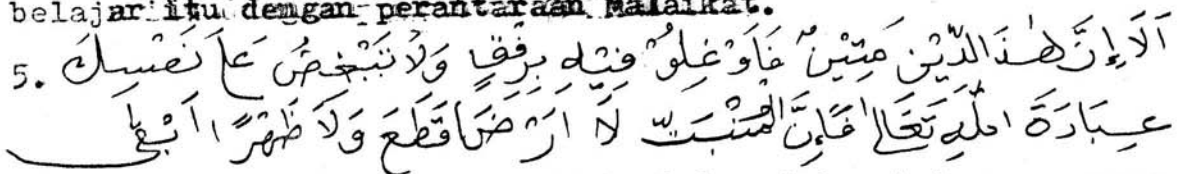 belajar itu dengan perantaraan Malaikat.
5. اَلَا إِنَّ هٰذَا الدِّيْنَ مَتِيْنٌ فَاَوْغِلُوْ فِيْهِ بِرِفْقٍ وَلَا تَبْغَضُ عَلٰ نَفْسِكَ
عِبَادَةَ اللّٰهِ تَعَالٰ فَاِنَّ الْمُنْبَتَّ لَا اَرْضًا قَطَعَ وَلَا ظَهْرًا اَبْقٰى